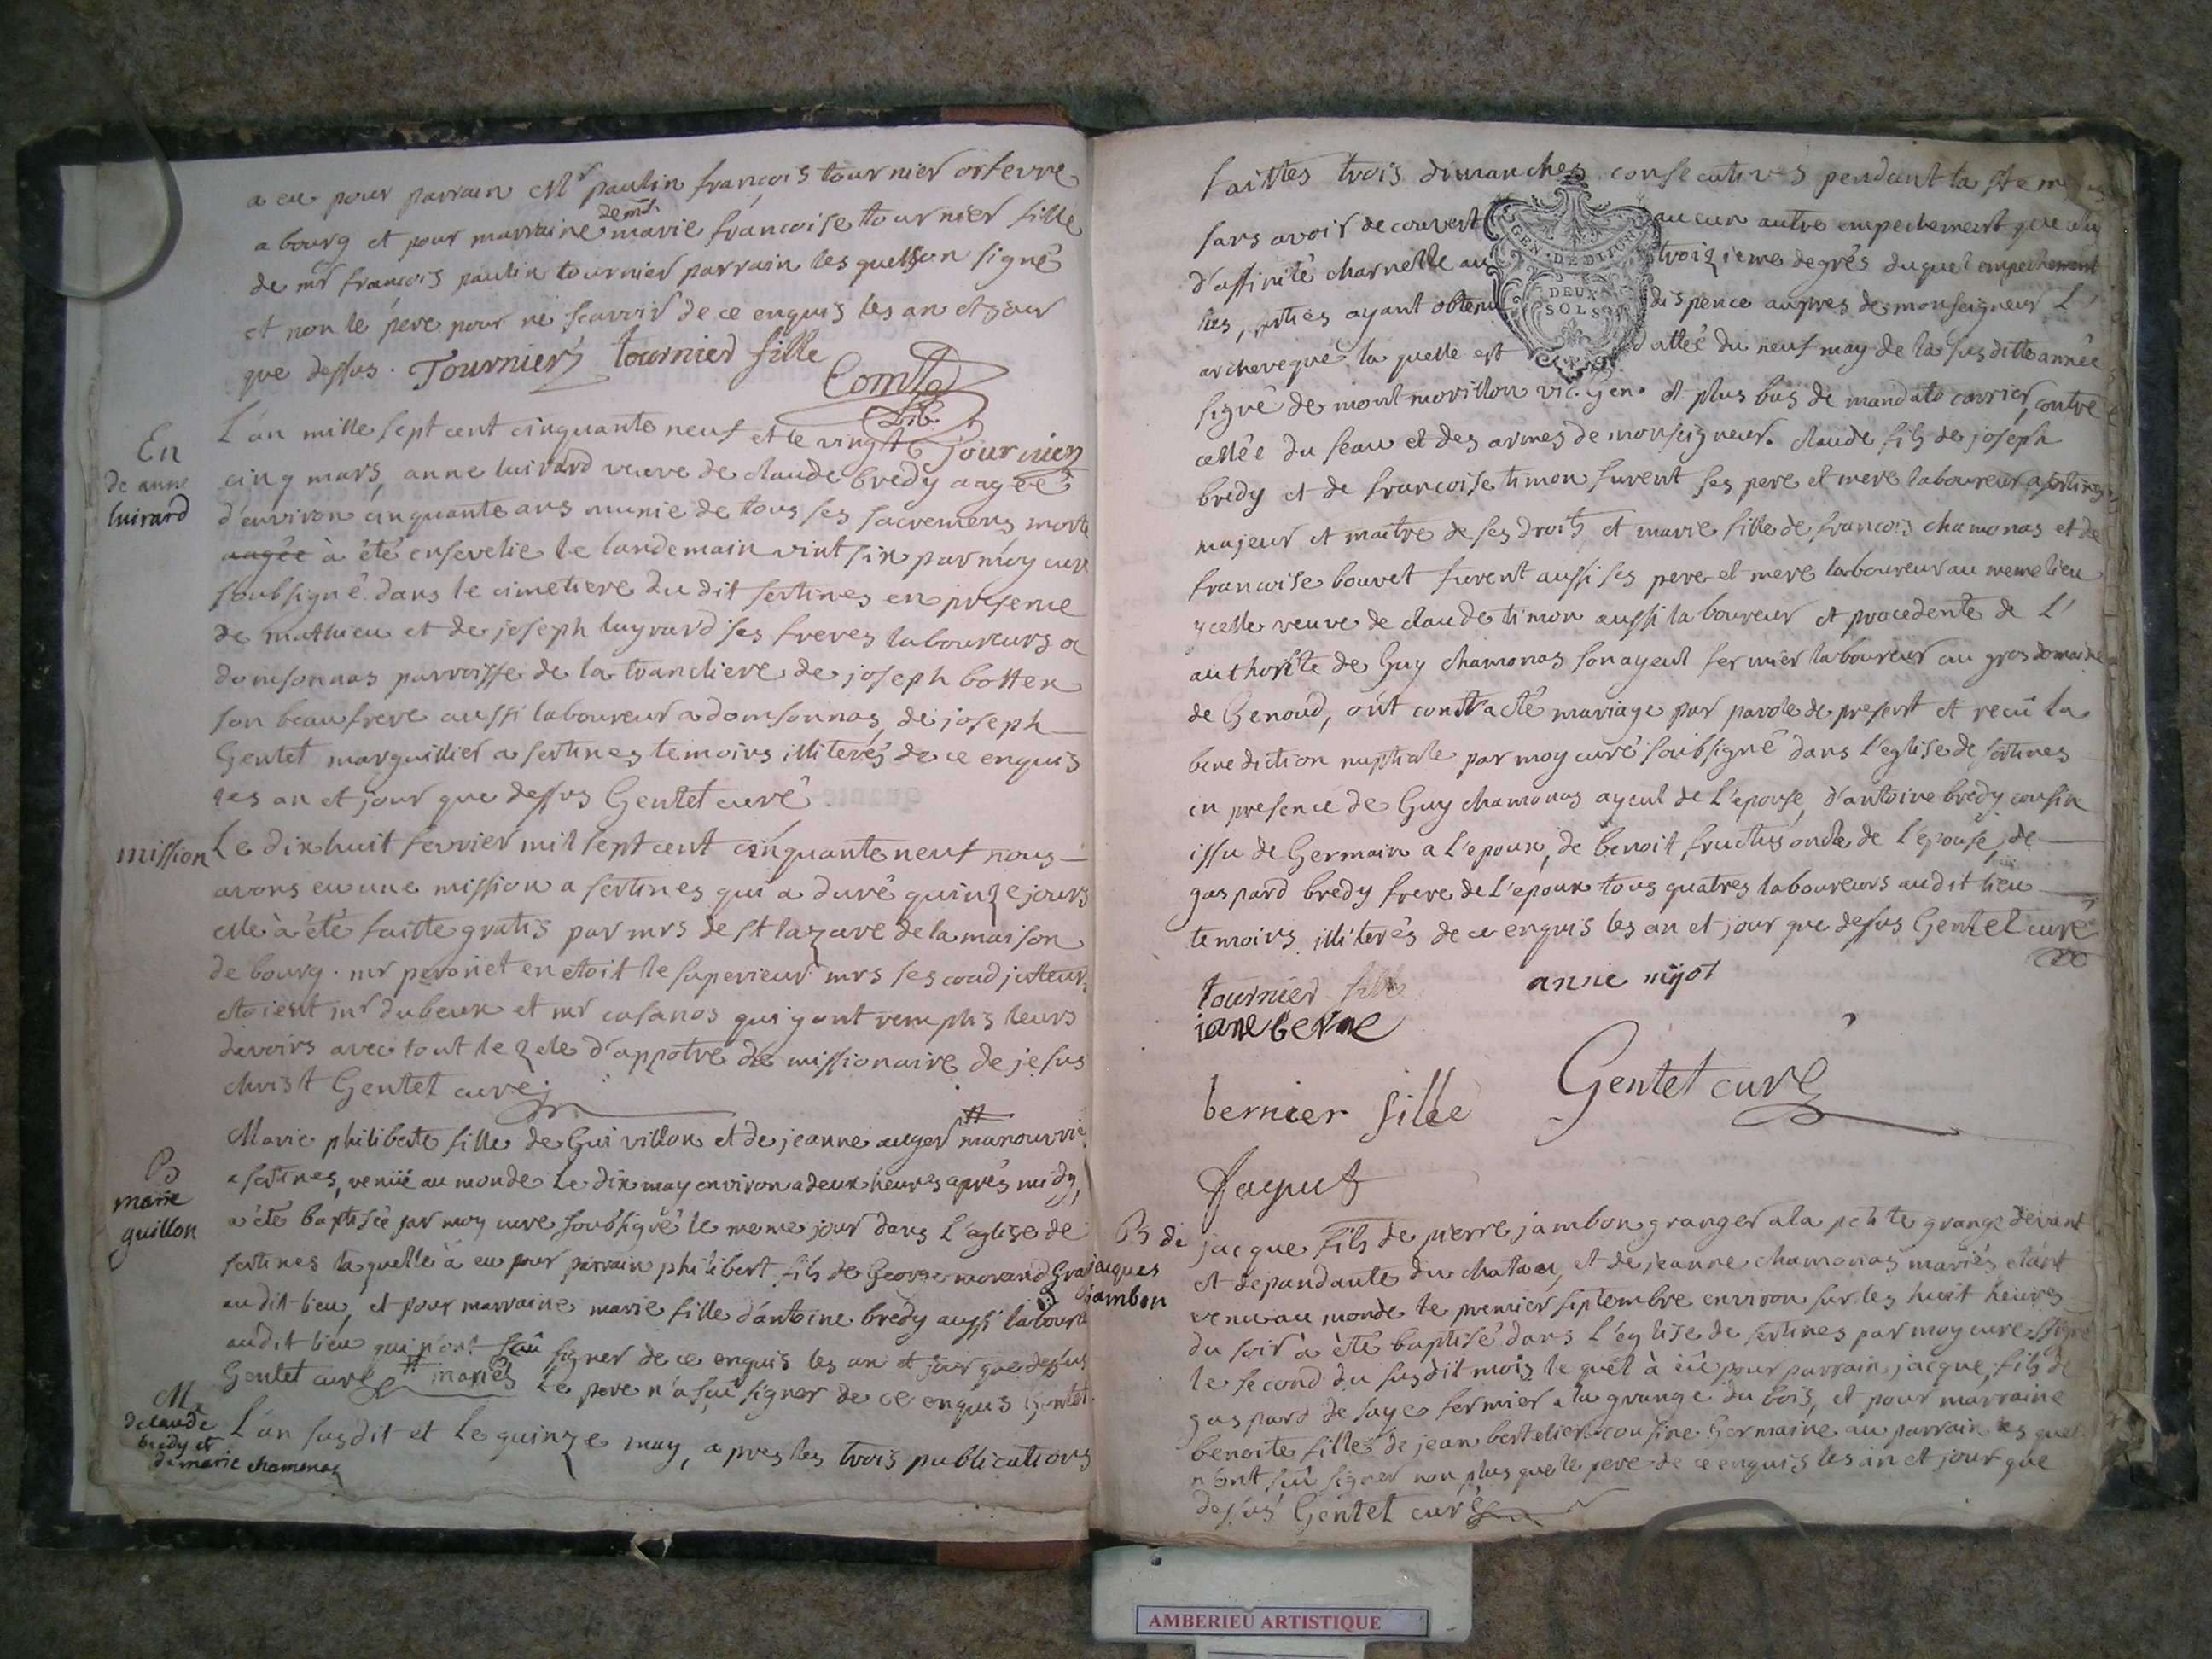 a eu pour parrain Mr paulin françois tournier orfevre
a bourg et pour marraine demlle marie francoise tournier fille
de mr françois paulin tournier parrain les quels on signé
et non le pere pour ne scavoir de ce enquis les an et jour
que dessus. Tournier tournier fille
Comte
En
de anne
luirard
L'an mille sept cent cinquante neuf et le vingt
cinq mars, anne luirard veuve de claude bredy aagée
d'environ cinquante ans munie de tous ses sacremens morte
aagée à été ensevelie le landemain vint six par moy curé
soubsigné dans le cimetiere du dit sertines en presence
de mathieu et de joseph luyrard ses freres laboureurs a
domsonnas parroisse de la trancliere de joseph botten
son beau frere aussi laboureur a domsonnas, de joseph
Gentet marguillier a sertines temoins illiterés de ce enquis
les an et jour que dessus Gentet curé
mission
Le dix huit fevrier mil sept cent cinquante neuf nous
avons eu une mission a sertines qui a duré quinze jours
elle à été faitte gratis par mrs de st lazare de la maison
de bourg. mr peronet en etoit le superieur mrs ses coadjuteurs
etoient mr dubeux et mr casanos qui y ont remplis leurs
devoirs avec tout le zele d'appotre de missionaire de jesus
christ Gentet curé
B
marie
guillon
Marie philiberte fille de Gui villon et de jeanne auger # manouvrie
a sertines, venüe au monde le dix may environ a deux heures après midy,
a été baptisée par moy curé soubsigné le meme jour dans l'eglise de
sertines laquelle à eu pour parrain philibert fils de George morand Gra
audit lieu, et pour marraine marie fille d'antoine bredy aussi laboure
audit lieu qui n'ont sçu signer de ce enquis les an et jour que dessus
Gentet curé # mariés le pere n'a sçu signer de ce enquis Gentet
M
de claude
bredy et
de marie chamonas
L'an susdit et le quinze may, apres les trois publications
faittes trois dimanches consecutives pendant la ste messe
sans avoir decouvert aucun autre empechement que celuy
d'affinité charnelle au troizieme degrés duquel empechement
les parties ayant obtenu dispence aupres de monseigneur L'
archeveque la quelle est dattée du neuf may de la susditte année
GEN. DE DIJON
DEUX
SOLS
signé de montmorillon vic. gen. et plus bas de mandato courrier, contre
cellée du seau et des armes de monseigneur. claude fils de joseph
bredy et de francoise timon furent ses pere et mere laboureur a sertines
majeur et maitre de ses droits, et marie fille de francois chamonas et de
francoise bouvet furent aussi ses pere et mere laboureur au meme lieu
ycelle veuve de claude timon aussi laboureur et procedente de L'
authorité de Guy chamonas son ayeul fermier laboureur au gros domaine
de Genoud, ont contracté mariage par parole de present et reçu la
benediction nuptiale par moy curé soubsigné dans l'eglise de sertines
en presence de Guy chamonas ayeul de L'epouse, d'antoine bredy cousin
issu de Germain a L'epoux, de benoit fructus oncle de L'epouse, de
gaspard bredy frere de L'epoux tous quatres laboureurs audit lieu
temoins illiterés de ce enquis les an et jour que dessus Gentet curé
tournier fille
anne nijot
iane berne
bernier fille
Gentet curé
Jaquet
B de
jacques
jambon
jacque fils de pierre jambon granger a la petite grange devant
et dependante du chatau, et de jeanne chamonas mariés etant
venu au monde le premier septembre environ sur les huit heures
du soir à été baptisé dans l'eglise de sertines par moy curé ssigné
le second du susdit mois le quel à eu pour parrain jacque fils de
gaspard de saye fermier a la grange du bois, et pour marraine
benoite fille de jean bertelier cousine Germaine au parrain les quels
n'ont sçu signer non plus que le pere de ce enquis les an et jour que
dessus Gentet curé
AMBERIEU ARTISTIQUE